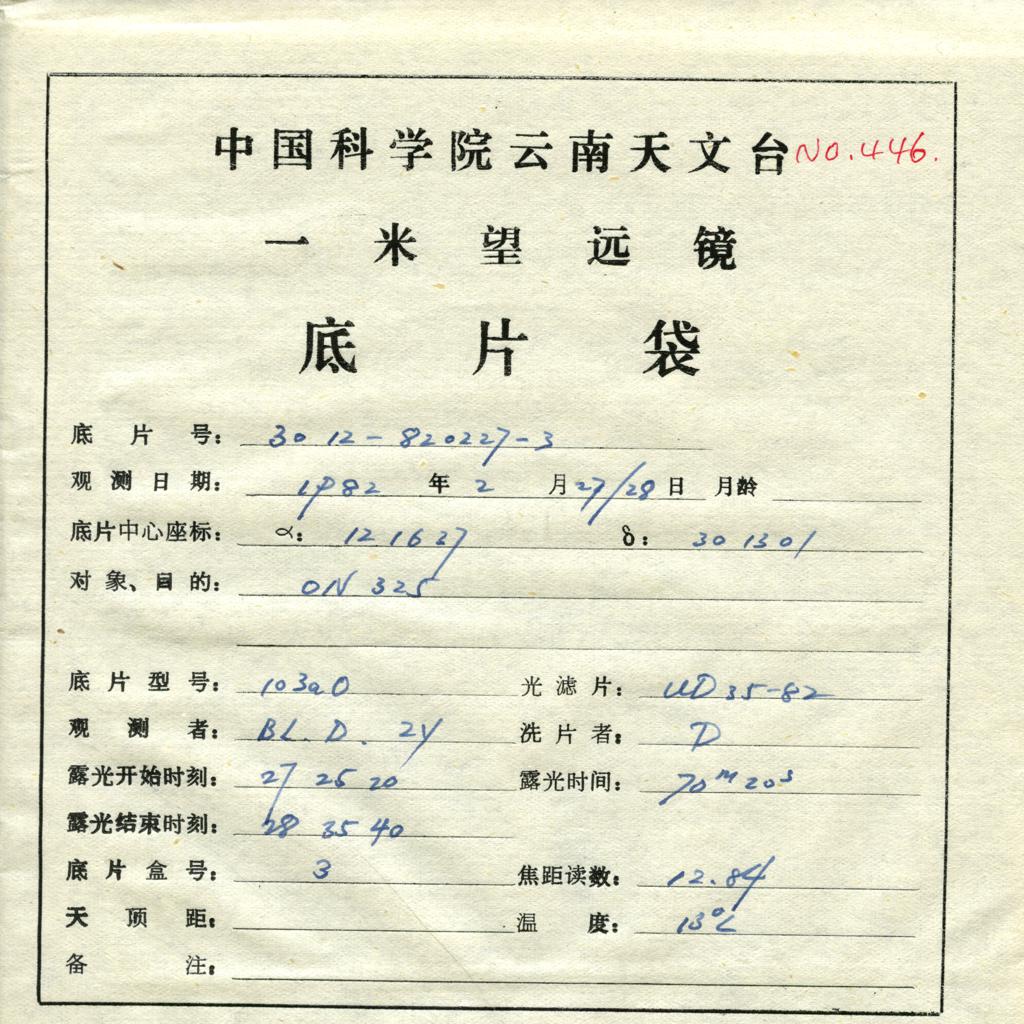 中国科学院云南天文台 NO.446.
一米望远镜
底片袋
底片号: 3012-820227-3
观测日期: 1982 年 2 月 27/28 日 月龄
底片中心座标: α: 12 16 37 δ: 30 13 01
对象、目的: ON 325
底片型号: 103aO 光滤片: UD 35-82
观测者: BL. D. ZY 洗片者: D
露光开始时刻: 27 25 20 露光时间: 70ᵐ20ˢ
露光结束时刻: 28 35 40
底片盒号: 3 焦距读数: 12.84
天顶距: 温度: 13°C
备注: